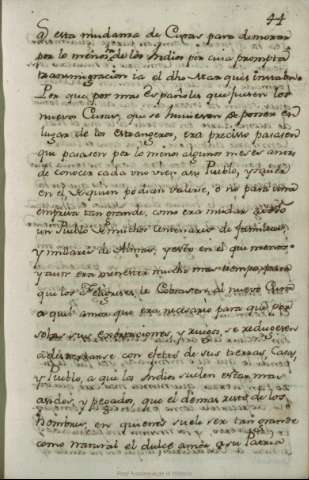 44
de esta mudanza de Curas para demorar
por lo menos de los Indios por cuia prompta
transmigracion ia el dho Marques instaba.
Por que por mas Españoles que fuesen los
nuevos Curas, que se huviesen de poner en
lugar de los estrangeros, era preciso pasasen
que pasasen por lo menos algunos meses antes
de conocer cada uno su Pueblo, y saber
en el de quien podian valerse, o no para una
empresa tan grande, como era mudar
un Pueblo de muchos centenares de familias,
y millares de Almas, y esto en el que menos:
y aun era menester mucho mas tiempo, para
que los Feligreses le cobrasen al nuevo Cura
a quel amor que era necesario para que
solas sus exortaciones, y ruegos, se reduxesen
a desterrarse con efecto de sus tierras, Casas,
y Pueblo, a que los Indios suelen estar mas
asidos, y pegados, que el demas resto de los
hombres, en quienes suele ser tan grande
como natural el dulce amor de su Patria
Real Academia de la Historia